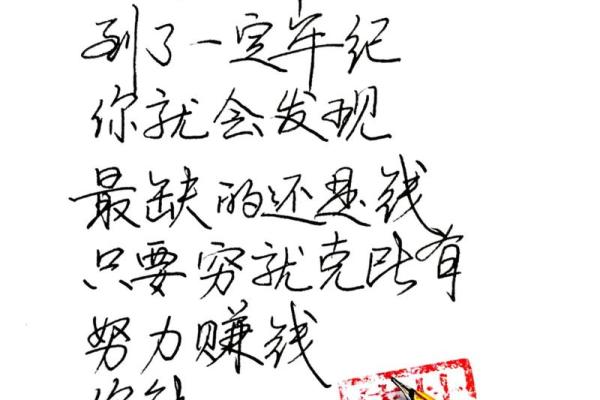 到了一定年纪
你就会发现
最缺的还是钱
只要穷就克所有
努力赚钱